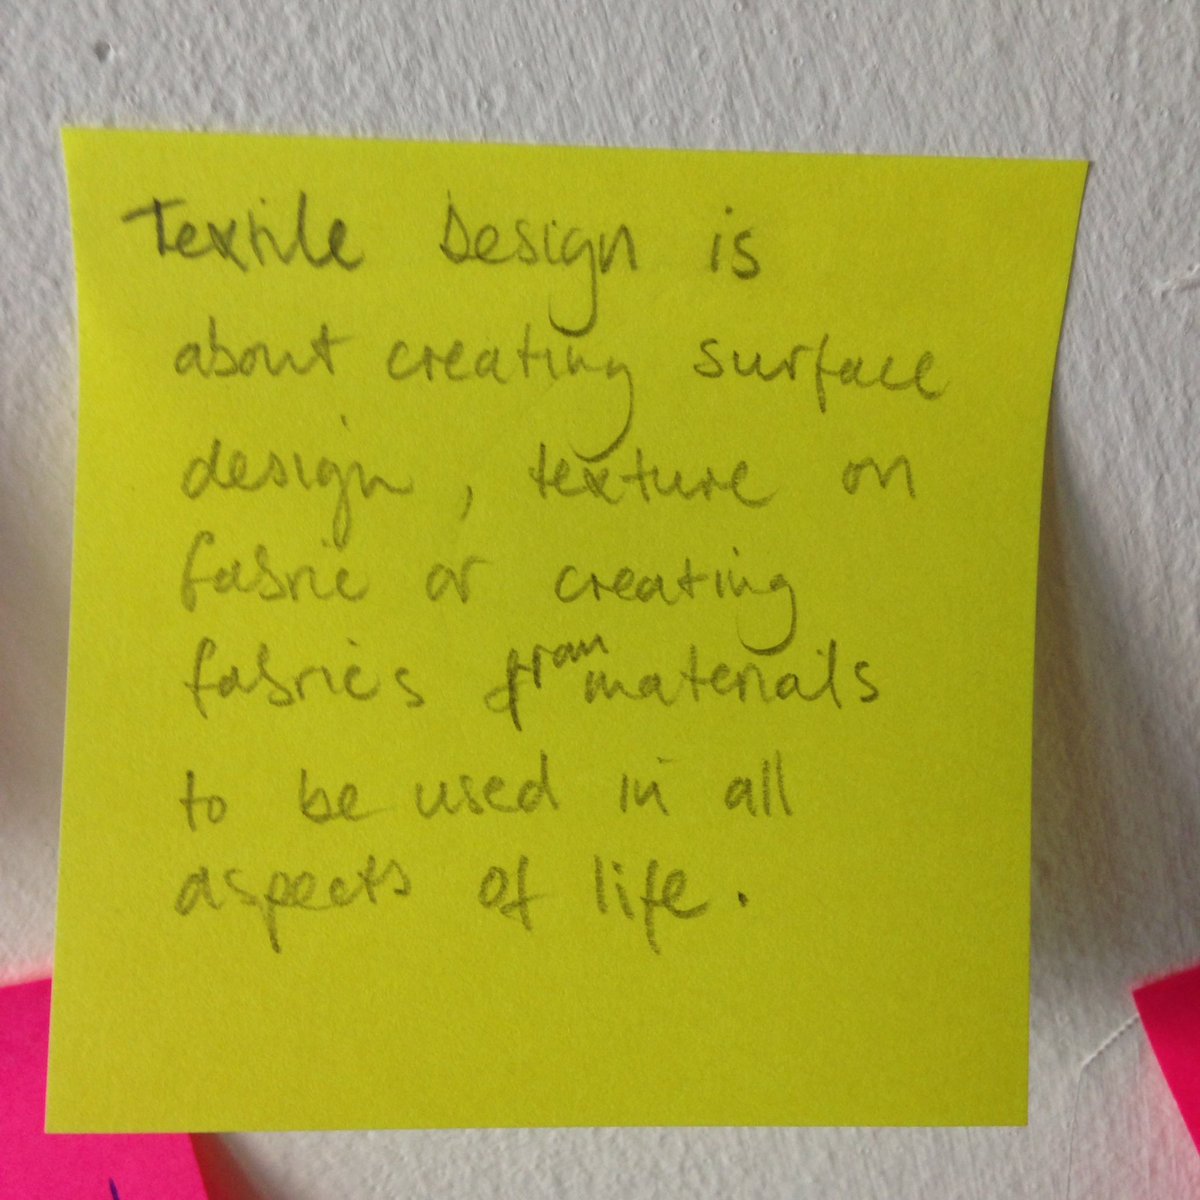 Textile Design is
about creating surface
design, texture on
fabric or creating
fabrics from materials
to be used in all
aspects of life.